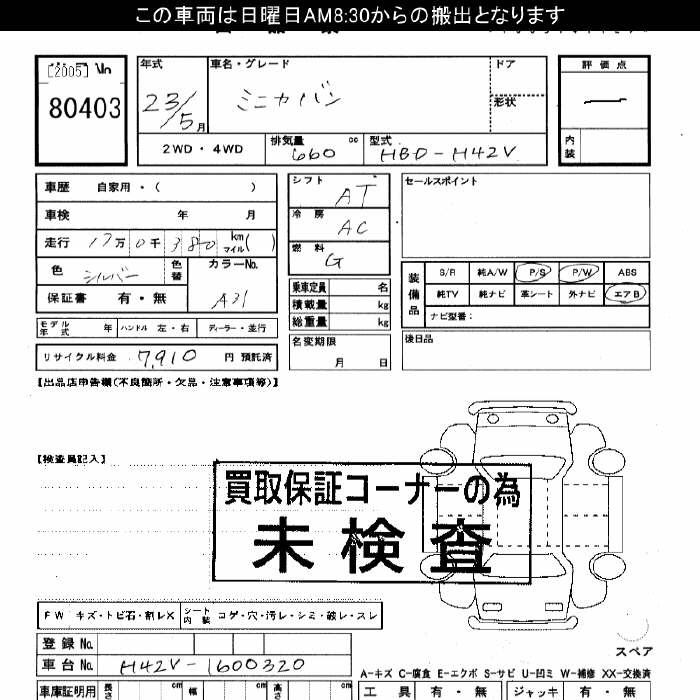 この車両は日曜日AM8:30からの搬出となります
[2005] No
80403
年式 車名・グレード ドア 評価点
23/5月 ミニカバン 形状 ―
2WD・4WD 排気量 660 cc 型式 HBD-H42V 内装
車歴 自家用・( )
車検 年 月
走行 17万 0千 380 km マイル( )
色 シルバー 色替 カラーNo. A31
保証書 有・無
モデル年式 年 ハンドル 左・右 ディーラー・並行
リサイクル料金 7,910 円 預託済
シフト AT
冷房 AC
燃料 G
乗車定員 名
積載量 kg
総重量 kg
名変期限 月 日
セールスポイント
装備品 S/R 純A/W P/S P/W ABS
純TV 純ナビ 革シート 外ナビ エアB
ナビ型番:
後日品
【出品店申告欄(不良箇所・欠品・注意事項等)】
【検査員記入】
買取保証コーナーの為
未検査
FW キズ・トビ石・割レX シート内装 コゲ・穴・汚レ・シミ・破レ・スレ
登録No.
車台No. H42V-1600320
スペア
A-キズ C-腐食 E-エクボ S-サビ U-凹ミ W-補修 XX-交換済
車庫証明用 長さ cm 幅 cm 高さ cm 工具 有・無 ジャッキ 有・無